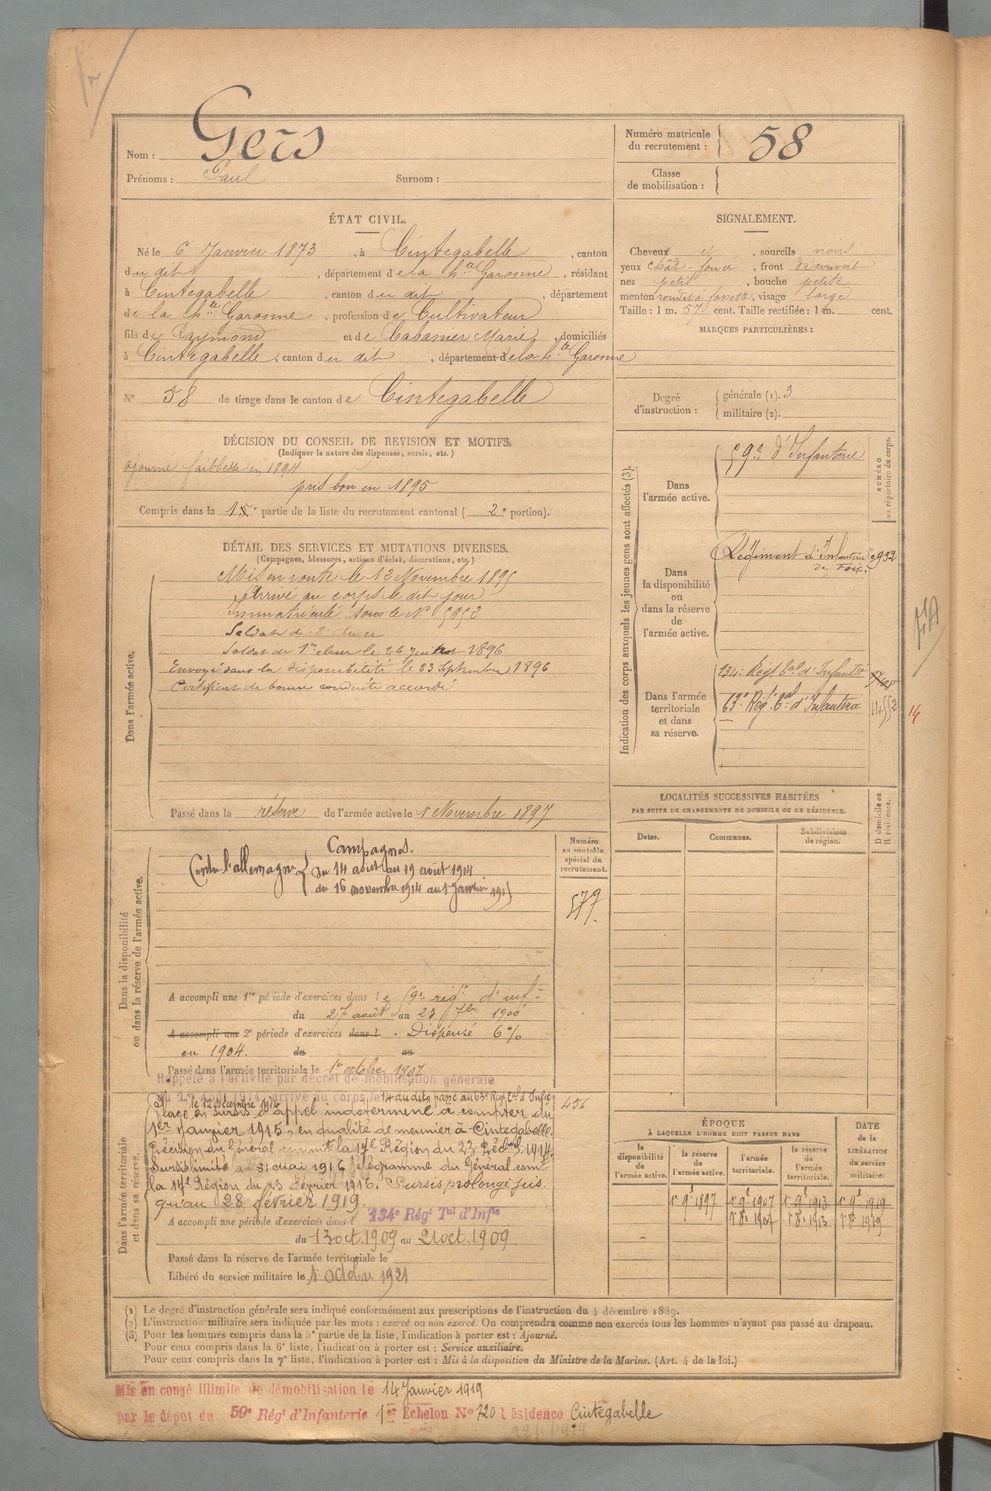 Nom : Gers
Prénoms : Paul Surnom :
Numéro matricule du recrutement : 58
Classe de mobilisation :
ÉTAT CIVIL.
Né le 6 Janvier 1873, à Cintegabelle, canton
du dit, département de la hte Garonne, résidant
à Cintegabelle, canton du dit, département
de la hte Garonne, profession de Cultivateur
fils de Raymond et de Cabanier Marie, domiciliés
à Cintegabelle, canton du dit, département de la hte Garonne
N° 58 de tirage dans le canton de Cintegabelle
SIGNALEMENT.
Cheveux et, sourcils noirs
yeux chât-foncé, front découvert
nez petit, bouche petite
menton rond à fossette, visage large
Taille : 1 m. 57 cent. Taille rectifiée : 1 m. cent.
MARQUES PARTICULIÈRES :
Degré d'instruction : générale (1). 3
militaire (2).
DÉCISION DU CONSEIL DE REVISION ET MOTIFS.
(Indiquer la nature des dispenses, sursis, etc.)
ajourné faiblesse en 1894
pris bon en 1895
Compris dans la 1e partie de la liste du recrutement cantonal ( 2e portion).
DÉTAIL DES SERVICES ET MUTATIONS DIVERSES.
(Campagnes, blessures, actions d'éclat, décorations, etc.)
Dans l'armée active.
Mis en route le 12 Novembre 1895
Arrivé au corps le dit jour
immatriculé sous le N° 5852
Soldat de 2e classe
Soldat de 1re classe le 26 Juillet 1896
Envoyé dans la disponibilité le 23 Septembre 1896
Certificat de bonne conduite accordé
Passé dans la réserve de l'armée active le 1 Novembre 1897
Indication des corps auxquels les jeunes gens sont affectés (3).
NUMÉRO au répertoire du corps.
Dans l'armée active.
59e d'Infanterie
Dans la disponibilité ou dans la réserve de l'armée active.
Régiment d'Infanterie de Foix.
Dans l'armée territoriale et dans sa réserve.
134e Régt tal d'Infantie
63e Régt tal d'Infanterie
14
LOCALITÉS SUCCESSIVES HABITÉES
PAR SUITE DE CHANGEMENTS DE DOMICILE OU DE RÉSIDENCE.
Dates. Communes. Subdivisions de région.
D domicile ou R résidence.
Dans la disponibilité ou dans la réserve de l'armée active.
Numéro au contrôle spécial du recrutement.
577
Campagnes.
Contre l'allemagne { du 14 août au 19 août 1914
du 16 novembre 1914 au 1 Janvier 1915
A accompli une 1re période d'exercices dans le 59e régt d'inf.
du 27 août au 23 7bre 1900
A accompli une 2e période d'exercices dans l . Dispensé 6%
en 1904. du au
Passé dans l'armée territoriale le 1er octobre 1907
Rappelé à l'activité par décret de mobilisation générale
du 1er août 1914 arrivé au corps le 14 du dit passé au 63e Régt tal d'Infie
le 12 décembre 1914
456
Dans l'armée territoriale et dans sa réserve.
Placé en sursis d'appel indéterminé à compter du
1er Janvier 1915, en qualité de meunier à Cintegabelle.
Décision du Général commt la 17e Région du 23 Décbre 1914.
Sursis limité au 31 mai 1916 télégramme du Général comt
la 17e Région du 23 Février 1916. Sursis prolongé jus-
qu'au 28 février 1919
A accompli une période d'exercices dans l 134e Régt Tal d'Infie
du 13 oct. 1909 au 21 oct. 1909
Passé dans la réserve de l'armée territoriale le
Libéré du service militaire le 1 octobre 1921
ÉPOQUE
À LAQUELLE L'HOMME DOIT PASSER DANS
la disponibilité de l'armée active.
la réserve de l'armée active.
l'armée territoriale.
la réserve de l'armée territoriale.
DATE de la LIBÉRATION du service militaire.
(1) Le degré d'instruction générale sera indiqué conformément aux prescriptions de l'instruction du 4 décembre 1889.
(2) L'instruction militaire sera indiquée par les mots : exercé ou non exercé. On comprendra comme non exercés tous les hommes n'ayant pas passé au drapeau.
(3) Pour les hommes compris dans la 5e partie de la liste, l'indication à porter est : Ajourné.
Pour ceux compris dans la 6e liste, l'indication à porter est : Service auxiliaire.
Pour ceux compris dans la 7e liste, l'indication à porter est : Mis à la disposition du Ministre de la Marine. (Art. 4 de la loi.)
Mis en congé illimité de démobilisation le 14 Janvier 1919
par le dépôt du 59e Régt d'Infanterie 1er Echelon N° 720 résidence Cintegabelle